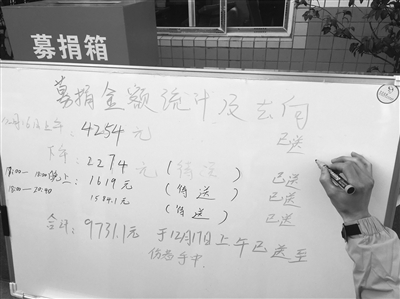 募捐箱
募捐金额统计及去向
月16日上午: 4254元 已送
下午: 2274元 (待送) 已送
18:00晚上: 1619元 (待送) 已送
18:00—20:40 1584.1元 (待送) 已送
合计: 9731.1元 于12月17日上午已送至
伤者手中.